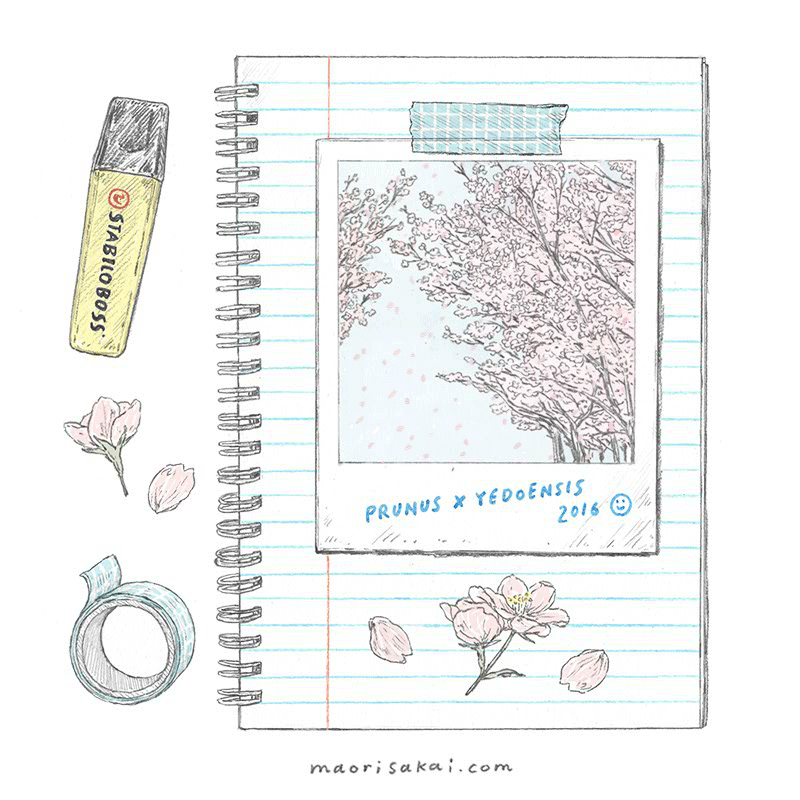 STABILO BOSS
PRUNUS X YEDOENSIS
2016
maorisakai.com